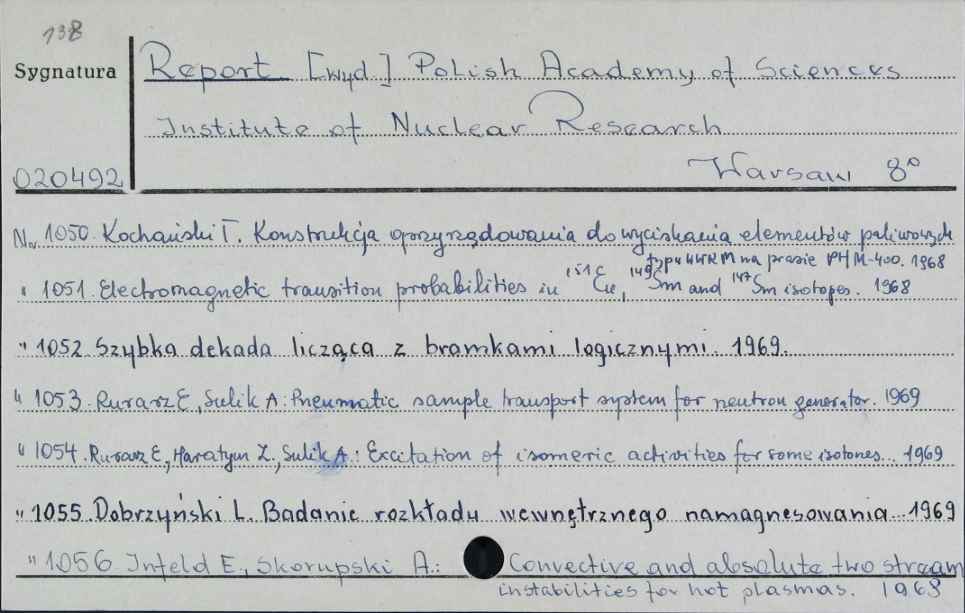 138
Sygnatura
Report [wyd.] Polish Academy of Sciences
Institute of Nuclear Research
Warsaw 8°
020492
Nr 1050. Kochański T. Konstrukcja oprzyrządowania do wyciskania elementów paliwowych
typu WWRM na prasie PHM-400. 1968
" 1051. Electromagnetic transition probabilities in 151C Eu, 149Sm and 147Sm isotopes. 1968
" 1052 Szybka dekada licząca z bramkami logicznymi. 1969.
" 1053. Rurarz E, Sulik A: Pneumatic sample transport system for neutron generator. 1969
" 1054. Rurarz E, Haratym Z., Sulik A.: Excitation of isomeric activities for some isotones... 1969
" 1055. Dobrzyński L. Badanie rozkładu wewnętrznego namagnesowania 1969
" 1056 Infeld E., Skorupski A.: Convective and absolute two stream
instabilities for hot plasmas. 1969